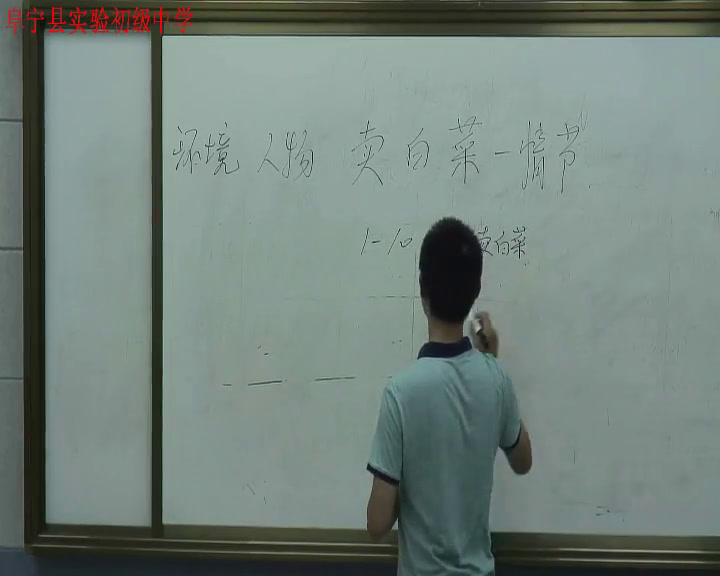 阜宁县实验初级中学
环境 人物 卖白菜—情节
1-10 卖白菜